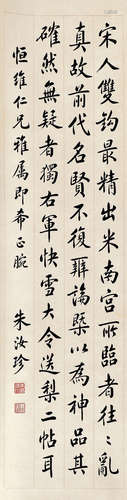 宋人雙鈎最精出米南宮所臨者往〻亂
真故前代名賢不復辯論槩以為神品其
確然無疑者獨右軍快雪大令送梨二帖耳
恒維仁兄雅属即希正腕
朱汝珍